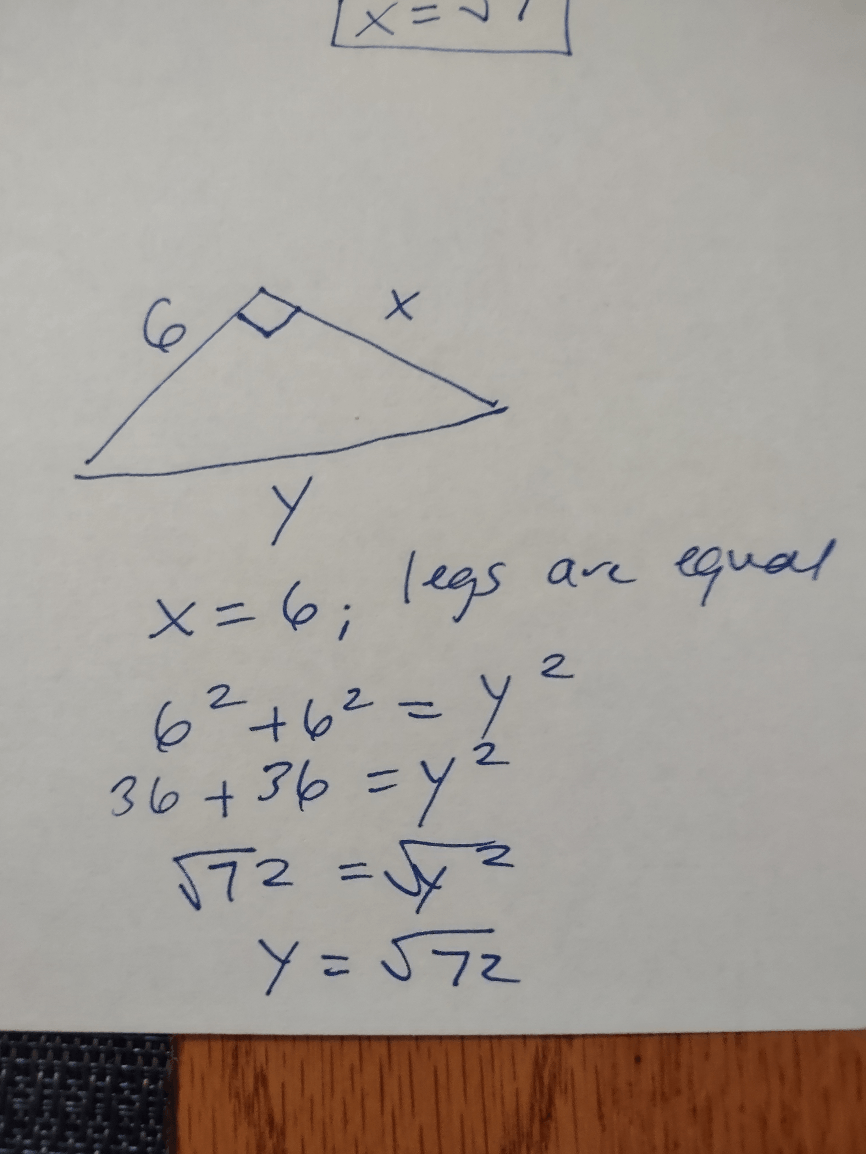 x = √7
6
x
y
x = 6; legs are equal
6² + 6² = y²
36 + 36 = y²
√72 = √y²
y = √72